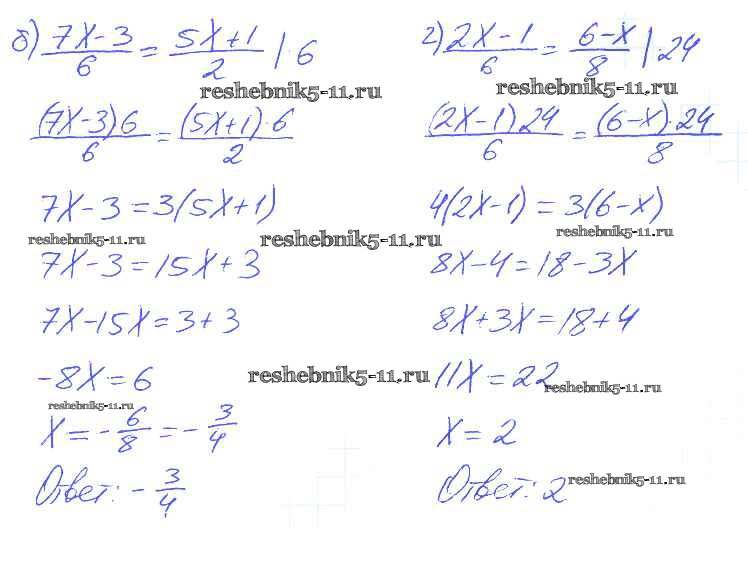 б) (7x-3)/6 = (5x+1)/2 |·6
reshebnik5-11.ru
(7x-3)6/6 = (5x+1)·6/2
7x-3=3(5x+1)
reshebnik5-11.ru
reshebnik5-11.ru
7x-3=15x+3
7x-15x=3+3
-8x=6
reshebnik5-11.ru
reshebnik5-11.ru
x=-6/8=-3/4
Ответ: -3/4
г) (2x-1)/6 = (6-x)/8 |·24
reshebnik5-11.ru
(2x-1)24/6 = (6-x)·24/8
4(2x-1)=3(6-x)
reshebnik5-11.ru
8x-4=18-3x
8x+3x=18+4
11x=22
reshebnik5-11.ru
x=2
Ответ: 2
reshebnik5-11.ru